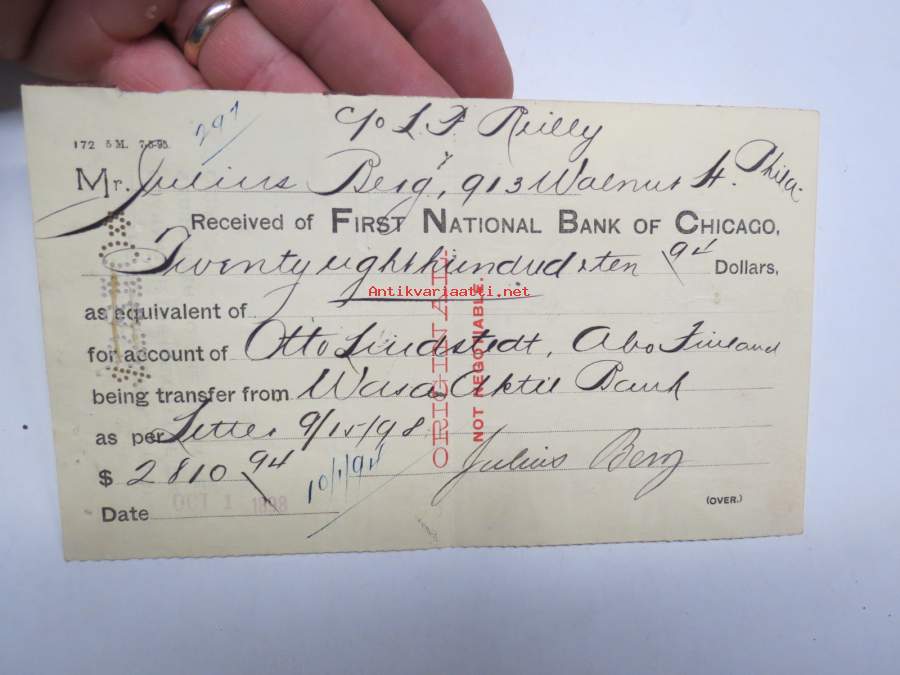 297
c/o L. F. Reilly
172 5 M. 7-5-95.
Mr. Julius Berg, 913 Walnut St. Phila.
Received of FIRST NATIONAL BANK OF CHICAGO,
Twenty eight hundred & ten 94 Dollars,
Antikvariaatti.net
as equivalent of
for account of Otto Lindstedt, Abo Finland
being transfer from Wasa Aktie Bank
as per Letter 9/15/98
$ 2810 94
Julius Berg
Date OCT 1 1898
(OVER.)
ORIGINAL
NOT NEGOTIABLE.